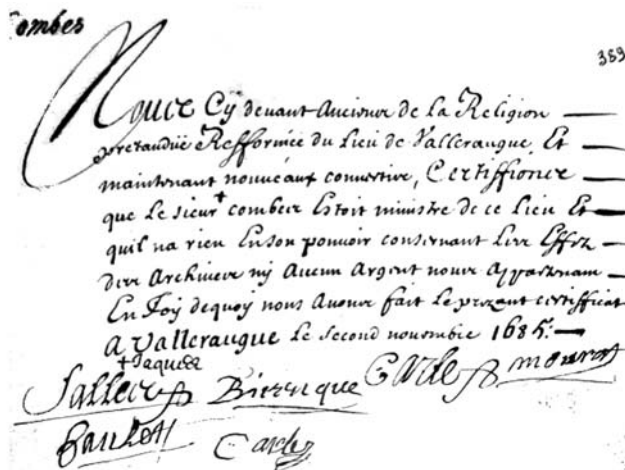 Combes
389
Nous Cy devant Anciens de la Religion
pretanduë Refformée du Lieu de Valleraugue, Et
maintenant nouveaux convertis, Certiffions
que Le sieur + combes Estoit ministre de ce Lieu Et
quil na rien Enson pouvoir consernant Les Effez
des Archives ny Aucun Argent nous Appartenam
En Foy dequoy nous Avons fait Le prezant certifficat
A Valleraugue Le second novembre 1685.
+ Jaques
Salles Bieruque Carle mouret
Carle